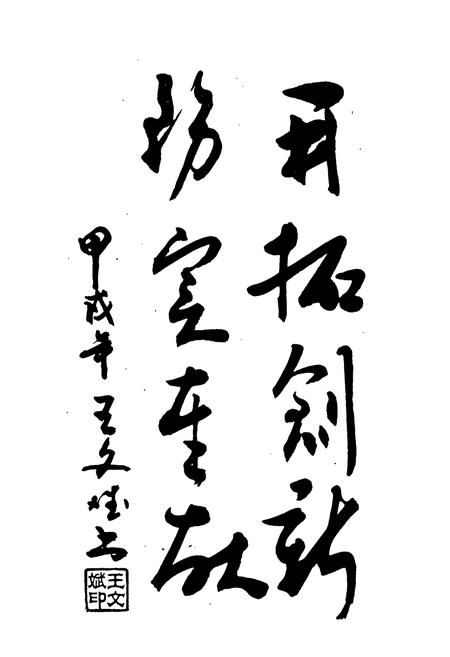 开拓创新
务实奉献
甲戌年 王文斌书
王文斌印